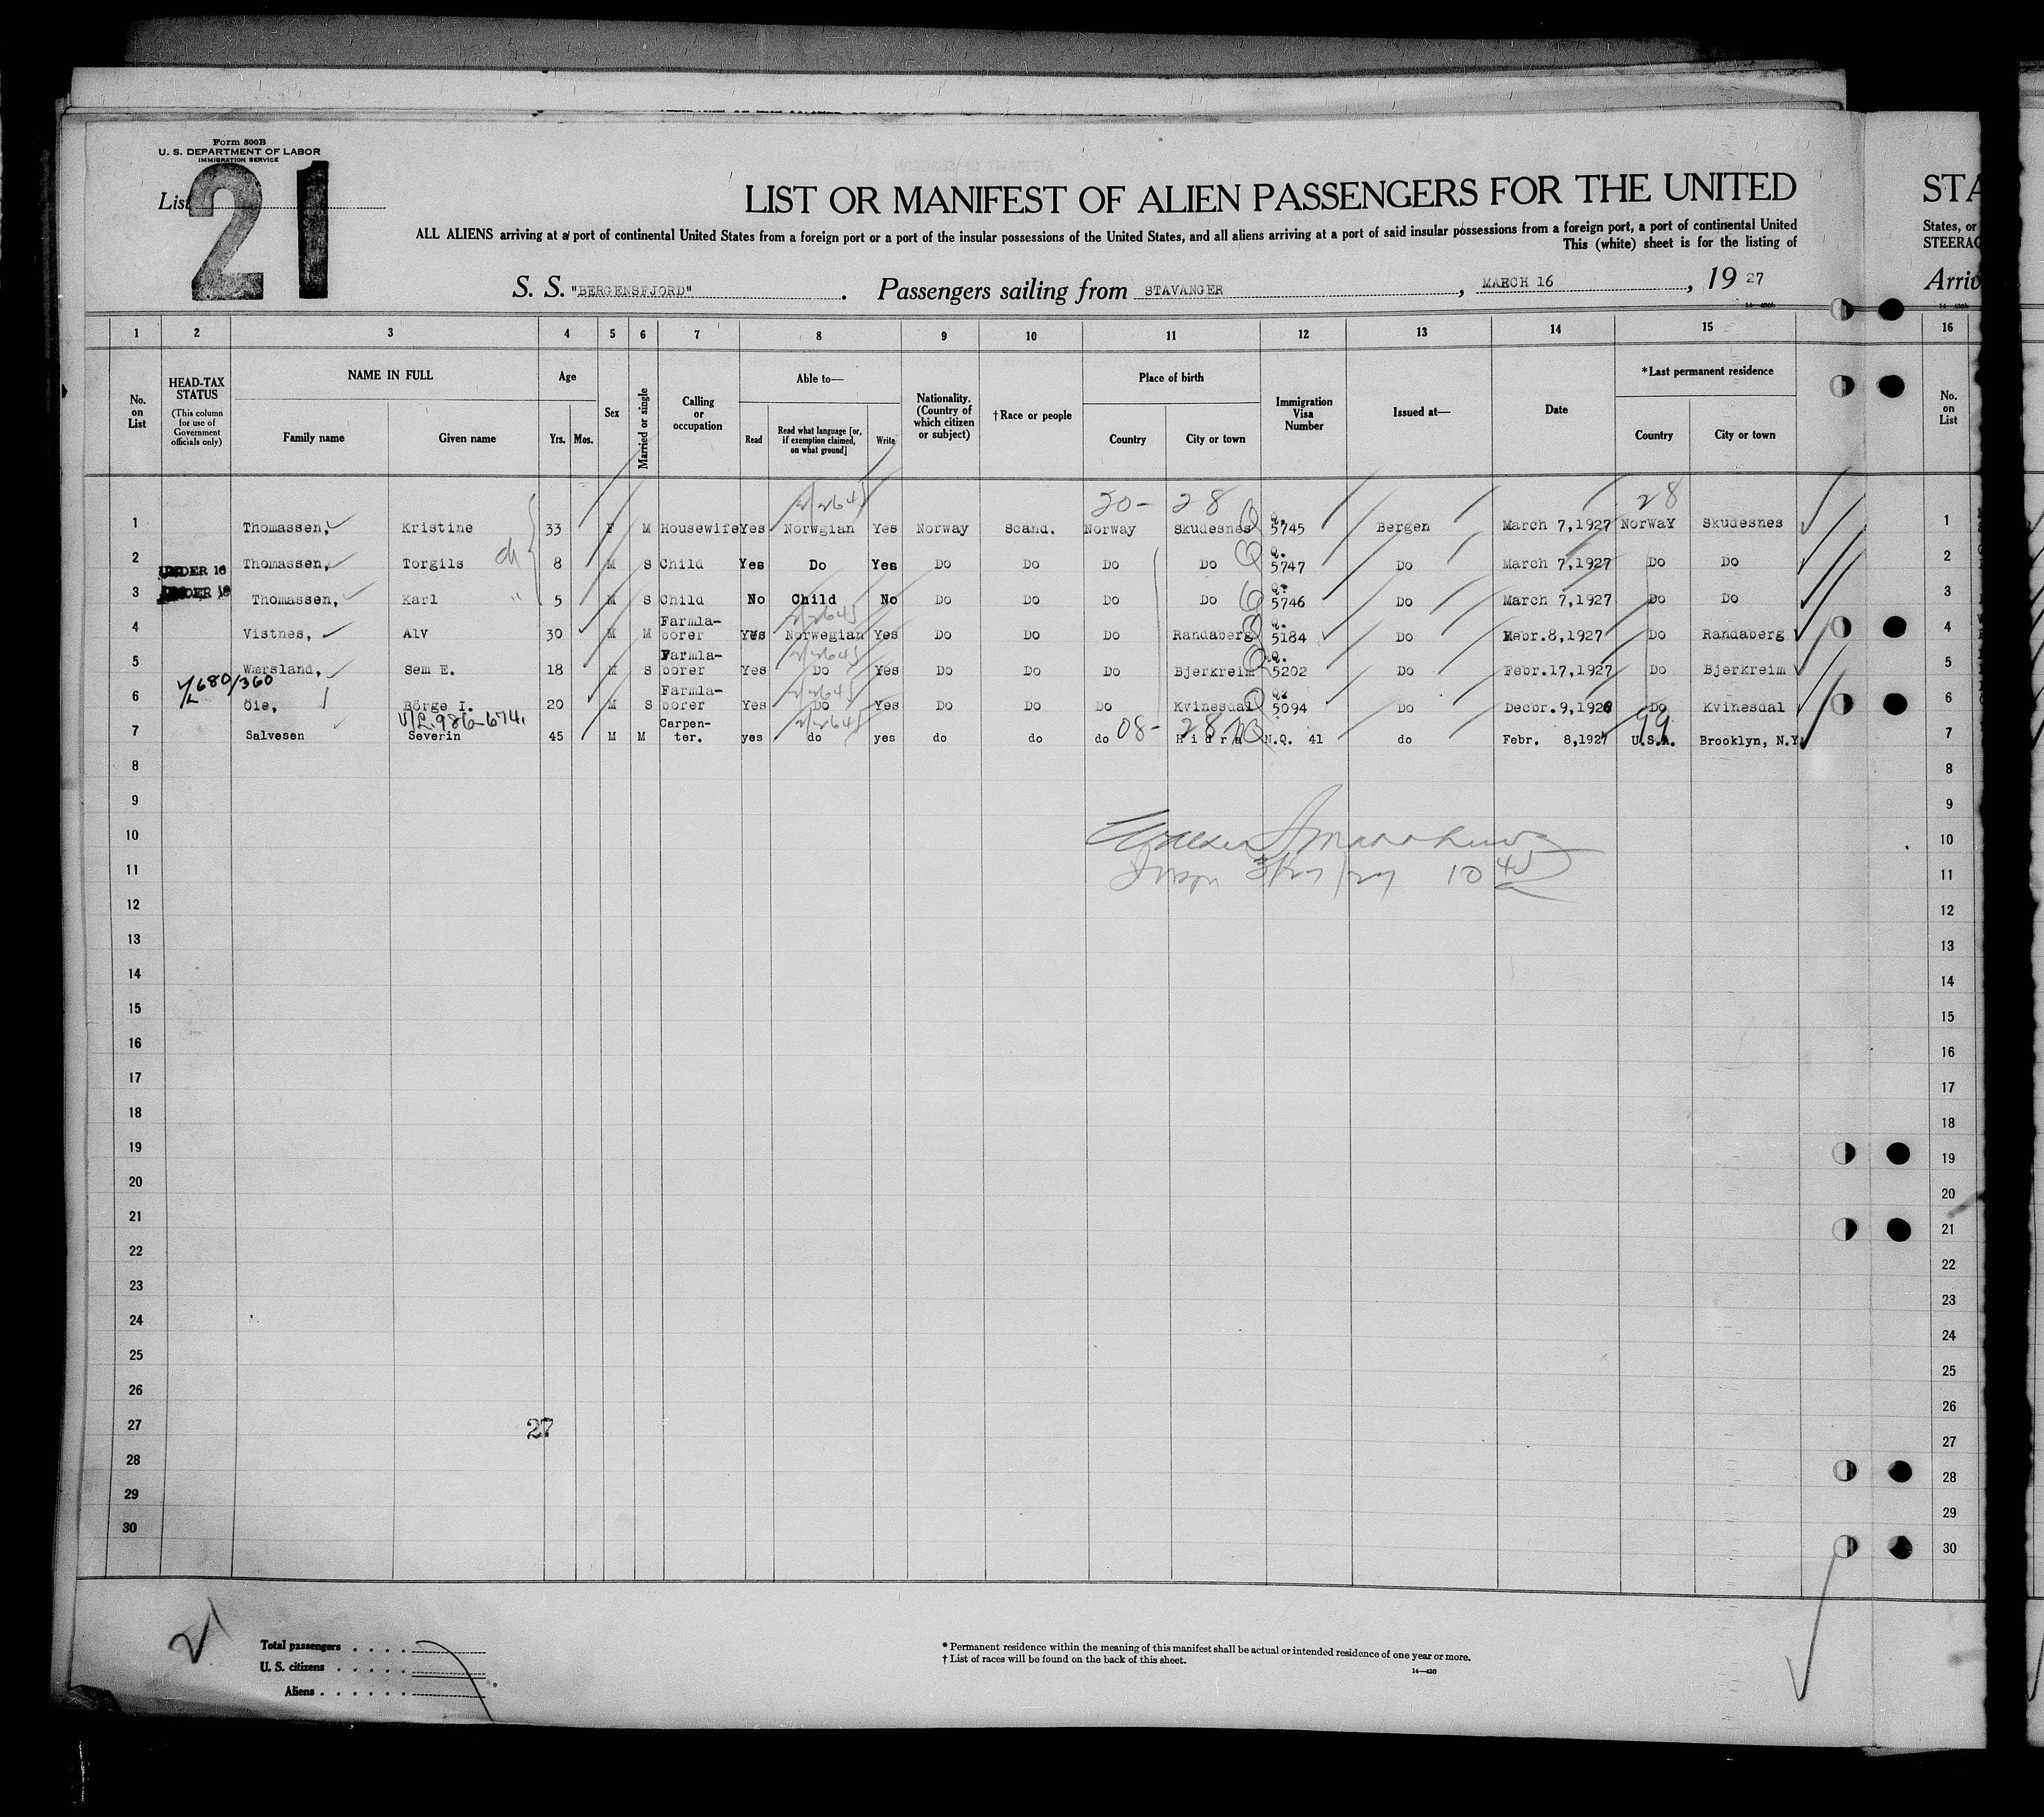 Form 500B
U. S. DEPARTMENT OF LABOR
IMMIGRATION SERVICE
List 21
LIST OR MANIFEST OF ALIEN PASSENGERS FOR THE UNITED
STA
ALL ALIENS arriving at a port of continental United States from a foreign port or a port of the insular possessions of the United States, and all aliens arriving at a port of said insular possessions from a foreign port, a port of continental United
States, or
This (white) sheet is for the listing of
STEERAG
S. S. "BERGENSFJORD". Passengers sailing from STAVANGER, MARCH 16, 19 27
Arriv
1 2 3 4 5 6 7 8 9 10 11 12 13 14 15 16
No. on List
HEAD-TAX STATUS (This column for use of Government officials only)
NAME IN FULL Family name Given name
Age Yrs. Mos.
Sex
Married or single
Calling or occupation
Able to— Read Read what language [or, if exemption claimed, on what ground] Write
Nationality. (Country of which citizen or subject)
†Race or people
Place of birth Country City or town
Immigration Visa Number
Issued at—
Date
*Last permanent residence Country City or town
No. on List
20- 28 28
1 Thomassen, Kristine 33 F M Housewife Yes Norwgian Yes Norway Scand. Norway Skudesnes Q. 5745 Bergen March 7,1927 NorWaY Skudesnes 1
2 UNDER 16 Thomassen, Torgils 8 M S Child Yes Do Yes Do Do Do Do Q. 5747 Do March 7,1927 Do Do 2
3 UNDER 16 Thomassen, Karl " 5 M S Child No Child No Do Do Do Do Q. 5746 Do March 7,1927 Do Do 3
4 Vistnes, Alv 30 M M Farmla-borer Yes Norwegian Yes Do Do Do Randaberg Q. 5184 Do Febr.8,1927 Do Randaberg 4
5 Wærsland, Sem E. 18 M S Farmla-borer Yes Do Yes Do Do Do Bjerkreim Q. 5202 Do Febr.17,1927 Do Bjerkreim 5
V/L 680/360
6 Öie, Börge I. 20 M S Farmla-borer Yes Do Yes Do Do Do Kvinesdal Q. 5094 Do Decbr.9,1926 Do Kvinesdal 6
V/L-986-674.
7 Salvesen Severin 45 M M Carpen-ter. yes do yes do do do 08- 28 Hidra N.Q. 41 do Febr. 8,1927 99 U.S.A. Brooklyn, N.Y. 7
8 8
9 9
10 10
11 3/27/27 10 45 11
12 12
13 13
14 14
15 15
16 16
17 17
18 18
19 19
20 20
21 21
22 22
23 23
24 24
25 25
26 26
27 27 27
28 28
29 29
30 30
Total passengers . . . .
U. S. citizens . . . . .
Aliens . . . . . .
* Permanent residence within the meaning of this manifest shall be actual or intended residence of one year or more.
† List of races will be found on the back of this sheet.
14—430